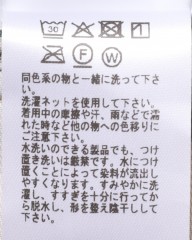 30
F W
同色系の物と一緒に洗って下さ
い。
洗濯ネットを使用して下さい。
着用中の摩擦や汗、雨などで濡
れた時など他の物への色移りに
ご注意下さい。
水洗いのできる製品でも、つけ
置き洗いは厳禁です。水につけ
置くことによって染料が流出し
やすくなります。すみやかに洗
濯し、すすぎを十分に行ってか
ら脱水し、形を整え陰干しして
下さい。